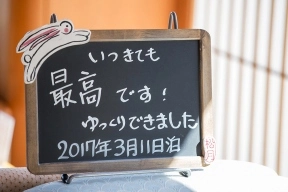 いつきても
最高です！
ゆっくりできました
2017年3月11日泊